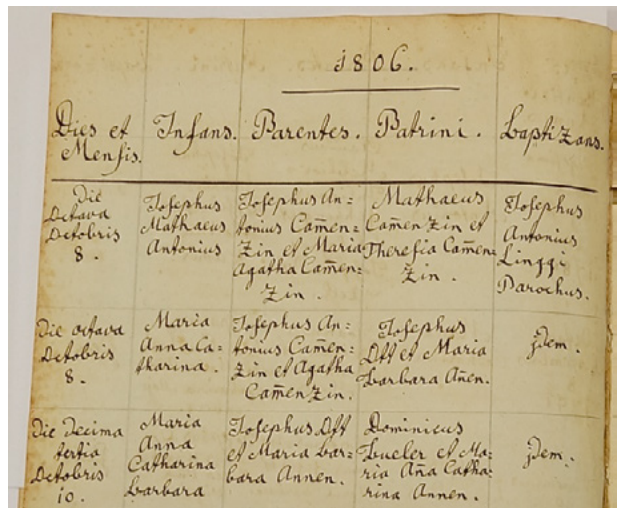 1806.
Dies et Mensis.
Infans.
Parentes.
Patrini.
Baptizans.
Die
Octava
Octobris
8.
Josephus
Mathaeus
Antonius
Josephus An=
tonius Cam̄en=
zin et Maria
Agatha Cam̄en=
zin.
Mathaeus
Cam̄enzin et
Theresia Cam̄en=
zin.
Josephus
Antonius
Linggi
Parochus.
Die octava
Octobris
8.
Maria
Anna Ca=
tharina.
Josephus An=
tonius Cam̄en=
zin et Agatha
Cam̄enzin.
Josephus
Ott et Maria
Barbara An̄en.
jdem.
Die Decima
tertia
Octobris
10.
Maria
Anna
Catharina
Barbara
Josephus Ott
et Maria Bar=
bara Annen.
Dominicus
Bueler et Ma=
ria An̄a Catha=
rina Annen.
jdem.